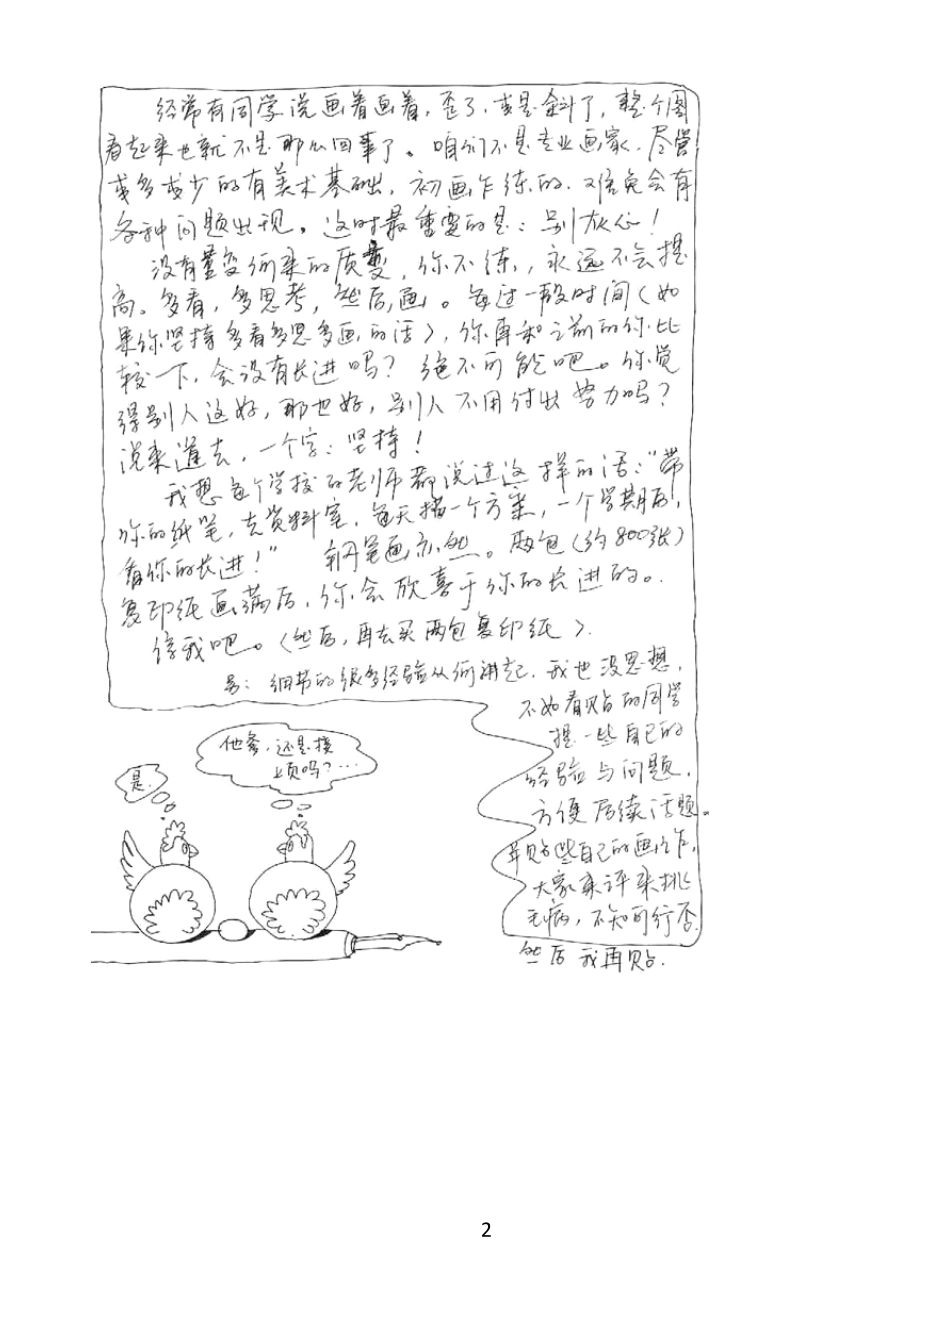 经常有同学说画着画着，歪了，或是斜了，整个图
看起来也就不是那么回事了。咱们不是专业画家，尽管
或多或少的有美术基础，初画乍练的，难免会有
各种问题出现。这时最重要的是：别放心！
没有量变何来的质变，你不练，永远不会提
高。多看，多思考，然后，画。每过一段时间（如
果你坚持多看多思多画的话），你再和之前的你比
较一下，会没有长进吗？绝不可能吧。你觉
得别人这好，那也好，别人不用付出努力吗？
说来道去，一个字：坚持！
我想每个学校的老师都说过这样的话："带
你的纸笔，去资料室，每天描一个方案，一个学期后，
看你的长进！" 钢笔画亦然。两包（约800张）
复印纸画满后，你会欣喜于你的长进的。
信我吧。（然后，再去买两包复印纸）.
：细节的很多经验从何讲起，我也没思想，
不如看贴的同学
提一些自己的
经验与问题，
方便后续话题。
贴些自己的画作，
大家来评来挑
毛病，不知可行否
然后我再贴.
他爹，还是接
上页吗？...
是.
2